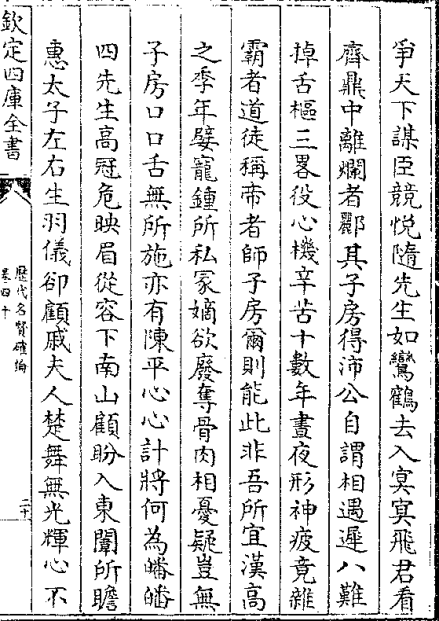 爭天下謀臣競悅隨先生如鸞鶴去入㝠㝠飛君看
齊鼎中離爛者酈其子房得沛公自謂相遇遲八難
掉舌樞三畧役心機辛苦十數年晝夜形神疲竟雜
霸者道徒稱帝者師子房爾則能此非吾所宜漢高
之季年嬖寵鍾所私冢嫡欲廢奪骨肉相憂疑豈無
子房口口舌無所施亦有陳平心心計將何為皤皤
四先生高冠危映眉從容下南山顧盼入東闈所瞻
惠太子左右生羽儀卻顧戚夫人楚舞無光輝心不
欽定四庫全書
歷代名賢確論
卷四十
二十